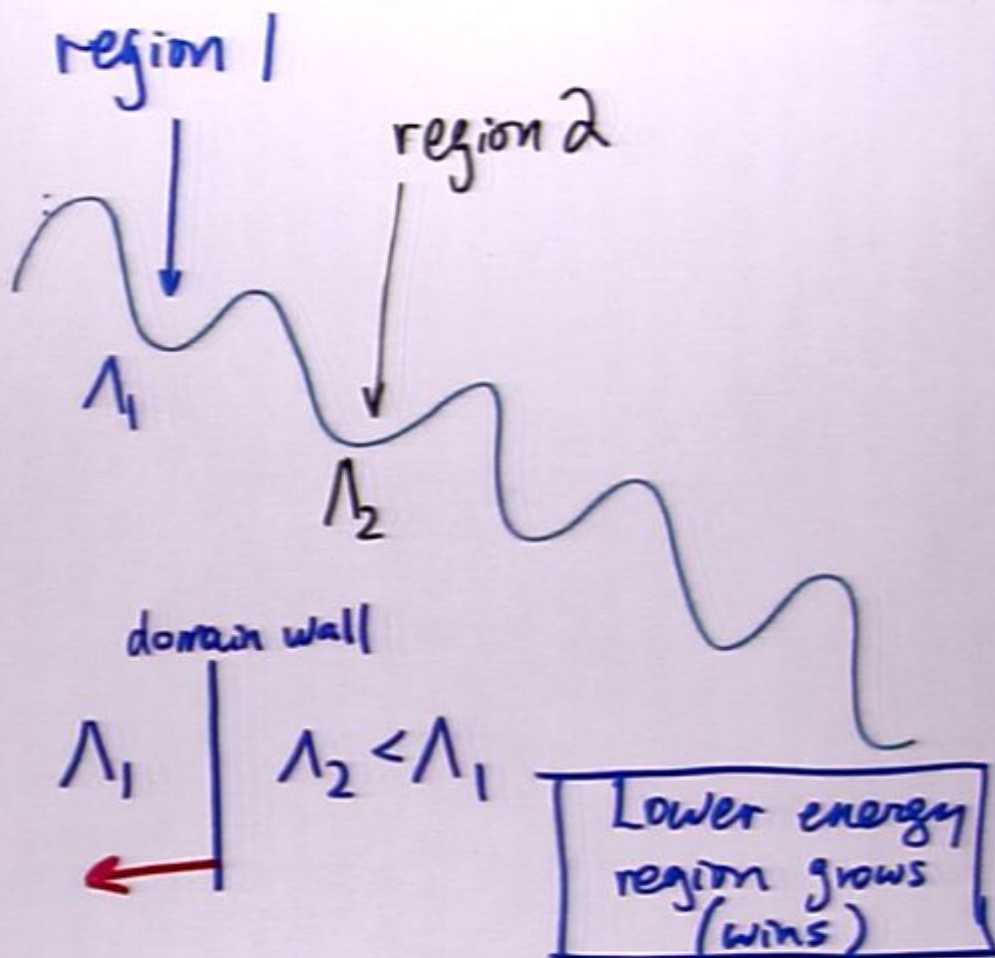 region 1
region 2
Λ₁
Λ₂
domain wall
Λ₁ Λ₂ < Λ₁
Lower energy
region grows
(wins)